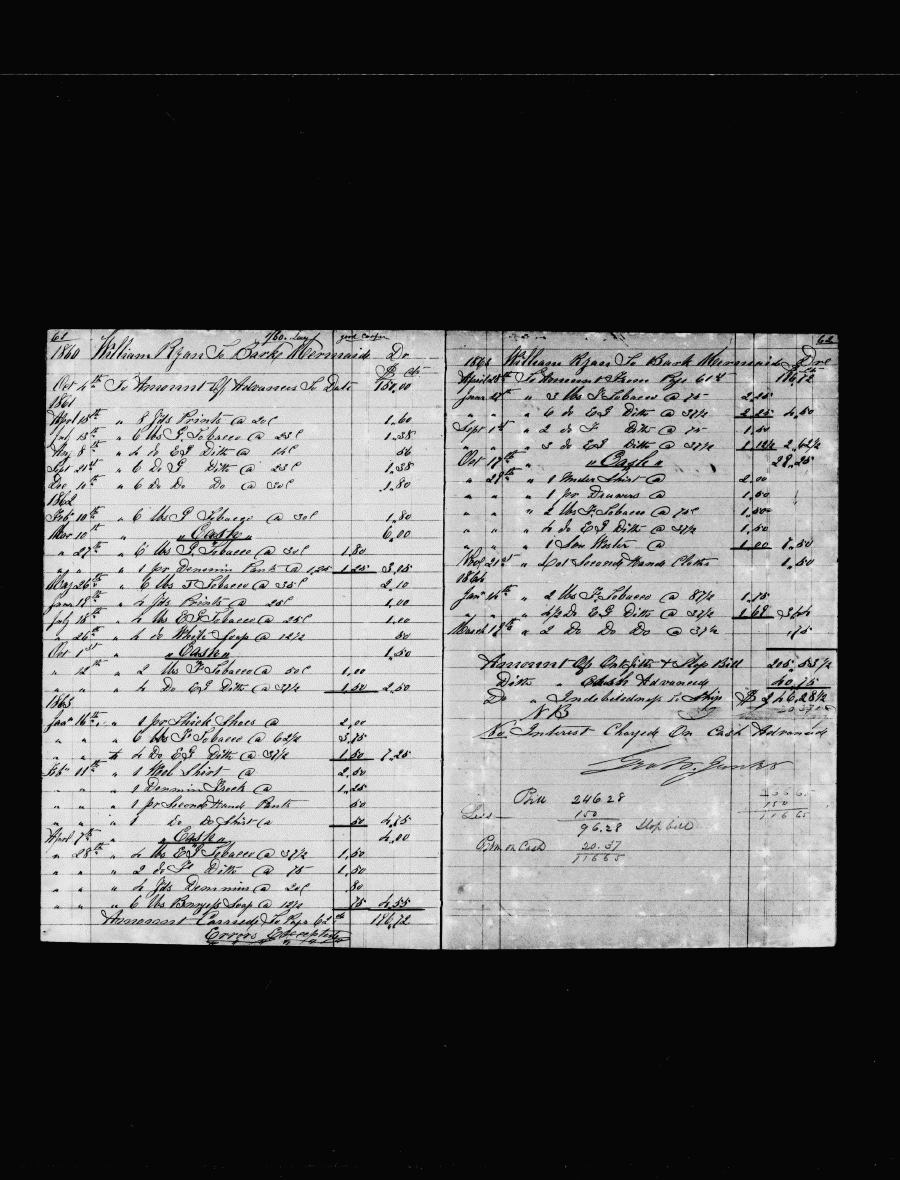 61 1/60. Lay good Cooper
1860 William Ryan To Bark Mermaid Dr
$ cts
Oct 4th To Amount Of Advances To Date 150,00
1861
April 15th " 8 Yds Prints @ 20c 1,60
July 13th " 6 lbs T. Tobacco @ 23c 1,38
Aug 8th " 4 do ET Ditto @ 14c 56
Sept 21st " 6 Do T Ditto @ 23c 1,38
Dec 10th " 6 Do Do Do @ 30c 1,80
1862
Feb 10th " 6 lbs T Tobacco @ 30c 1,80
Mar 10th " "Cash" 6,00
" 27th " 6 lbs T. Tobacco @ 30c 1,80
" " " 1 pr Denmin Pants @ 1,25 1,25 3,05
May 26th " 6 lbs T Tobacco @ 35c 2,10
June 18th " 4 Yds Prints @ 25c 1,00
July 18th " 4 lbs ET Tobacco @ 25c 1,00
" 26th " 4 do White Soap @ 12 1/2 50
Oct 1st " "Cash" 1,50
" 12th " 2 lbs T Tobacco @ 50c 1,00
" " " 4 Do ET Ditto @ 37 1/2 1,50 2,50
1863
Jany 16th " 1 pr Thick Shoes @ 2,00
" " " 6 lbs T Tobacco @ 62 1/2 3,75
" " " 4 Do ET Ditto @ 37 1/2 1,50 7,25
Feby 11th " 1 Wool Shirt @ 2,50
" " " 1 Denmin Frock @ 1,25
" " " 1 pr Second Hand Pants 50
" " " 1 Do Do Shirt @ 50 4,75
April 7th " "Cash" 4,00
" 28th " 4 lbs ET Tobacco @ 37 1/2 1,50
" " " 2 do T Ditto @ 75 1,50
" " " 4 Yds Denmin @ 20c 80
" " " 6 lbs Soap @ 12 1/2 75 4,55
Amount Carried To Page 62nd 196,72
Errors Excepted
62
1863 William Ryan To Bark Mermaid Dr
$ cts
April 28th To Amount From Page 61st 196,72
June 27th " 3 lbs T Tobacco @ 75 2,25
" " " 6 do ET Ditto @ 37 1/2 2,25 4,50
Sept 1st " 2 do T Ditto @ 75 1,50
" " " 3 do ET Ditto @ 37 1/2 1,12 1/2 2,62 1/2
Oct 17th " "Cash" 29,25
" 28th " 1 Under Shirt @ 2,00
" " " 1 pr Drawers @ 1,50
" " " 2 lbs T. Tobacco @ 75c 1,50
" " " 4 do ET Ditto @ 37 1/2 1,50
" " " 1 Sou Wester @ 1,00 7,50
Nov 21st " Lot Second Hand Cloths 1,50
1864
Jany 14th " 2 lbs T. Tobacco @ 87 1/2 1,75
" " " 4 1/2 Do ET Ditto @ 37 1/2 1,69 3,44
March 19th " 2 Do Do Do @ 37 1/2 ,75
Amount Of Outfitts & Slop Bill 205,53 1/2
Ditto " Cash Advanced 40,75
Do " Indebtedness To Ship $246,28 1/2
N B
No Interest Charged On Cash Advanced
Bill 246.28
Less 150
96.28 Slop bill
on Cash 20.37
116 65
150
116 65